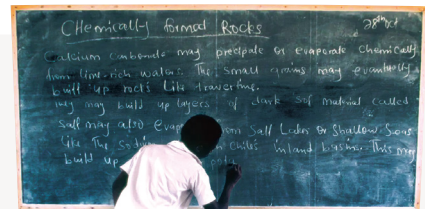 Chemically formed Rocks
28th Oct
Calcium carbonate may precipate or evaporate chemically
from lime-rich waters. The small grains may eventually
build up rocks like travertine.
may build up layers of dark sof material called
salt may also evap from Salt Lakes or Shallow Seas
like The Sodiu in Chile's inland basins. This may
build up pota